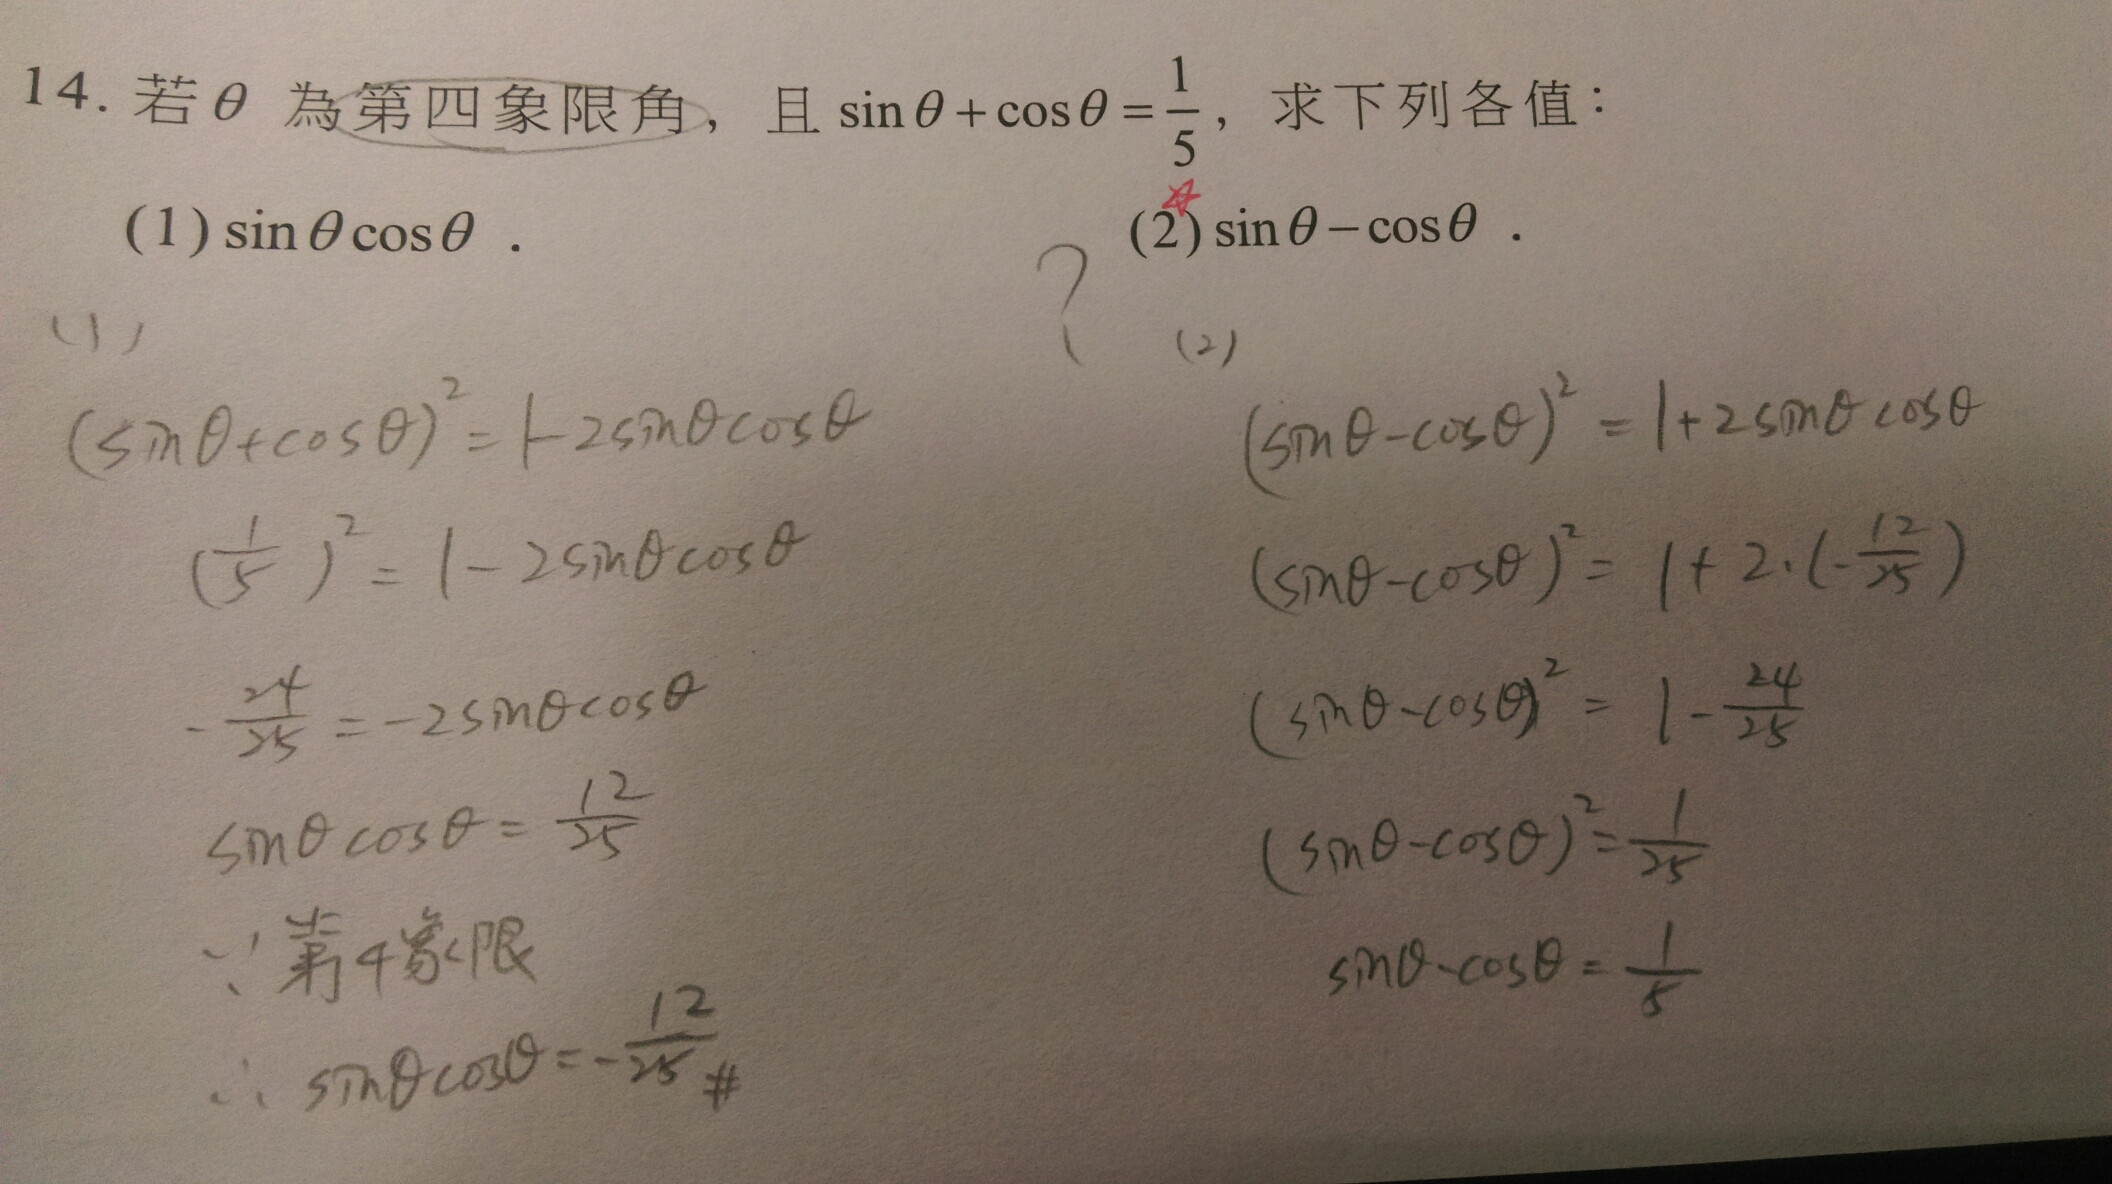 14. 若θ 為第四象限角，且 sinθ+cosθ=1/5，求下列各值：
(1) sinθcosθ．
(2) sinθ−cosθ．
?
(1)
(sinθ+cosθ)²=1-2sinθcosθ
(1/5)²=1-2sinθcosθ
-24/25=-2sinθcosθ
sinθcosθ=12/25
∵第4象限
∴sinθcosθ=-12/25 #
(2)
(sinθ-cosθ)²=1+2sinθcosθ
(sinθ-cosθ)²=1+2·(-12/25)
(sinθ-cosθ)²=1-24/25
(sinθ-cosθ)²=1/25
sinθ-cosθ=1/5